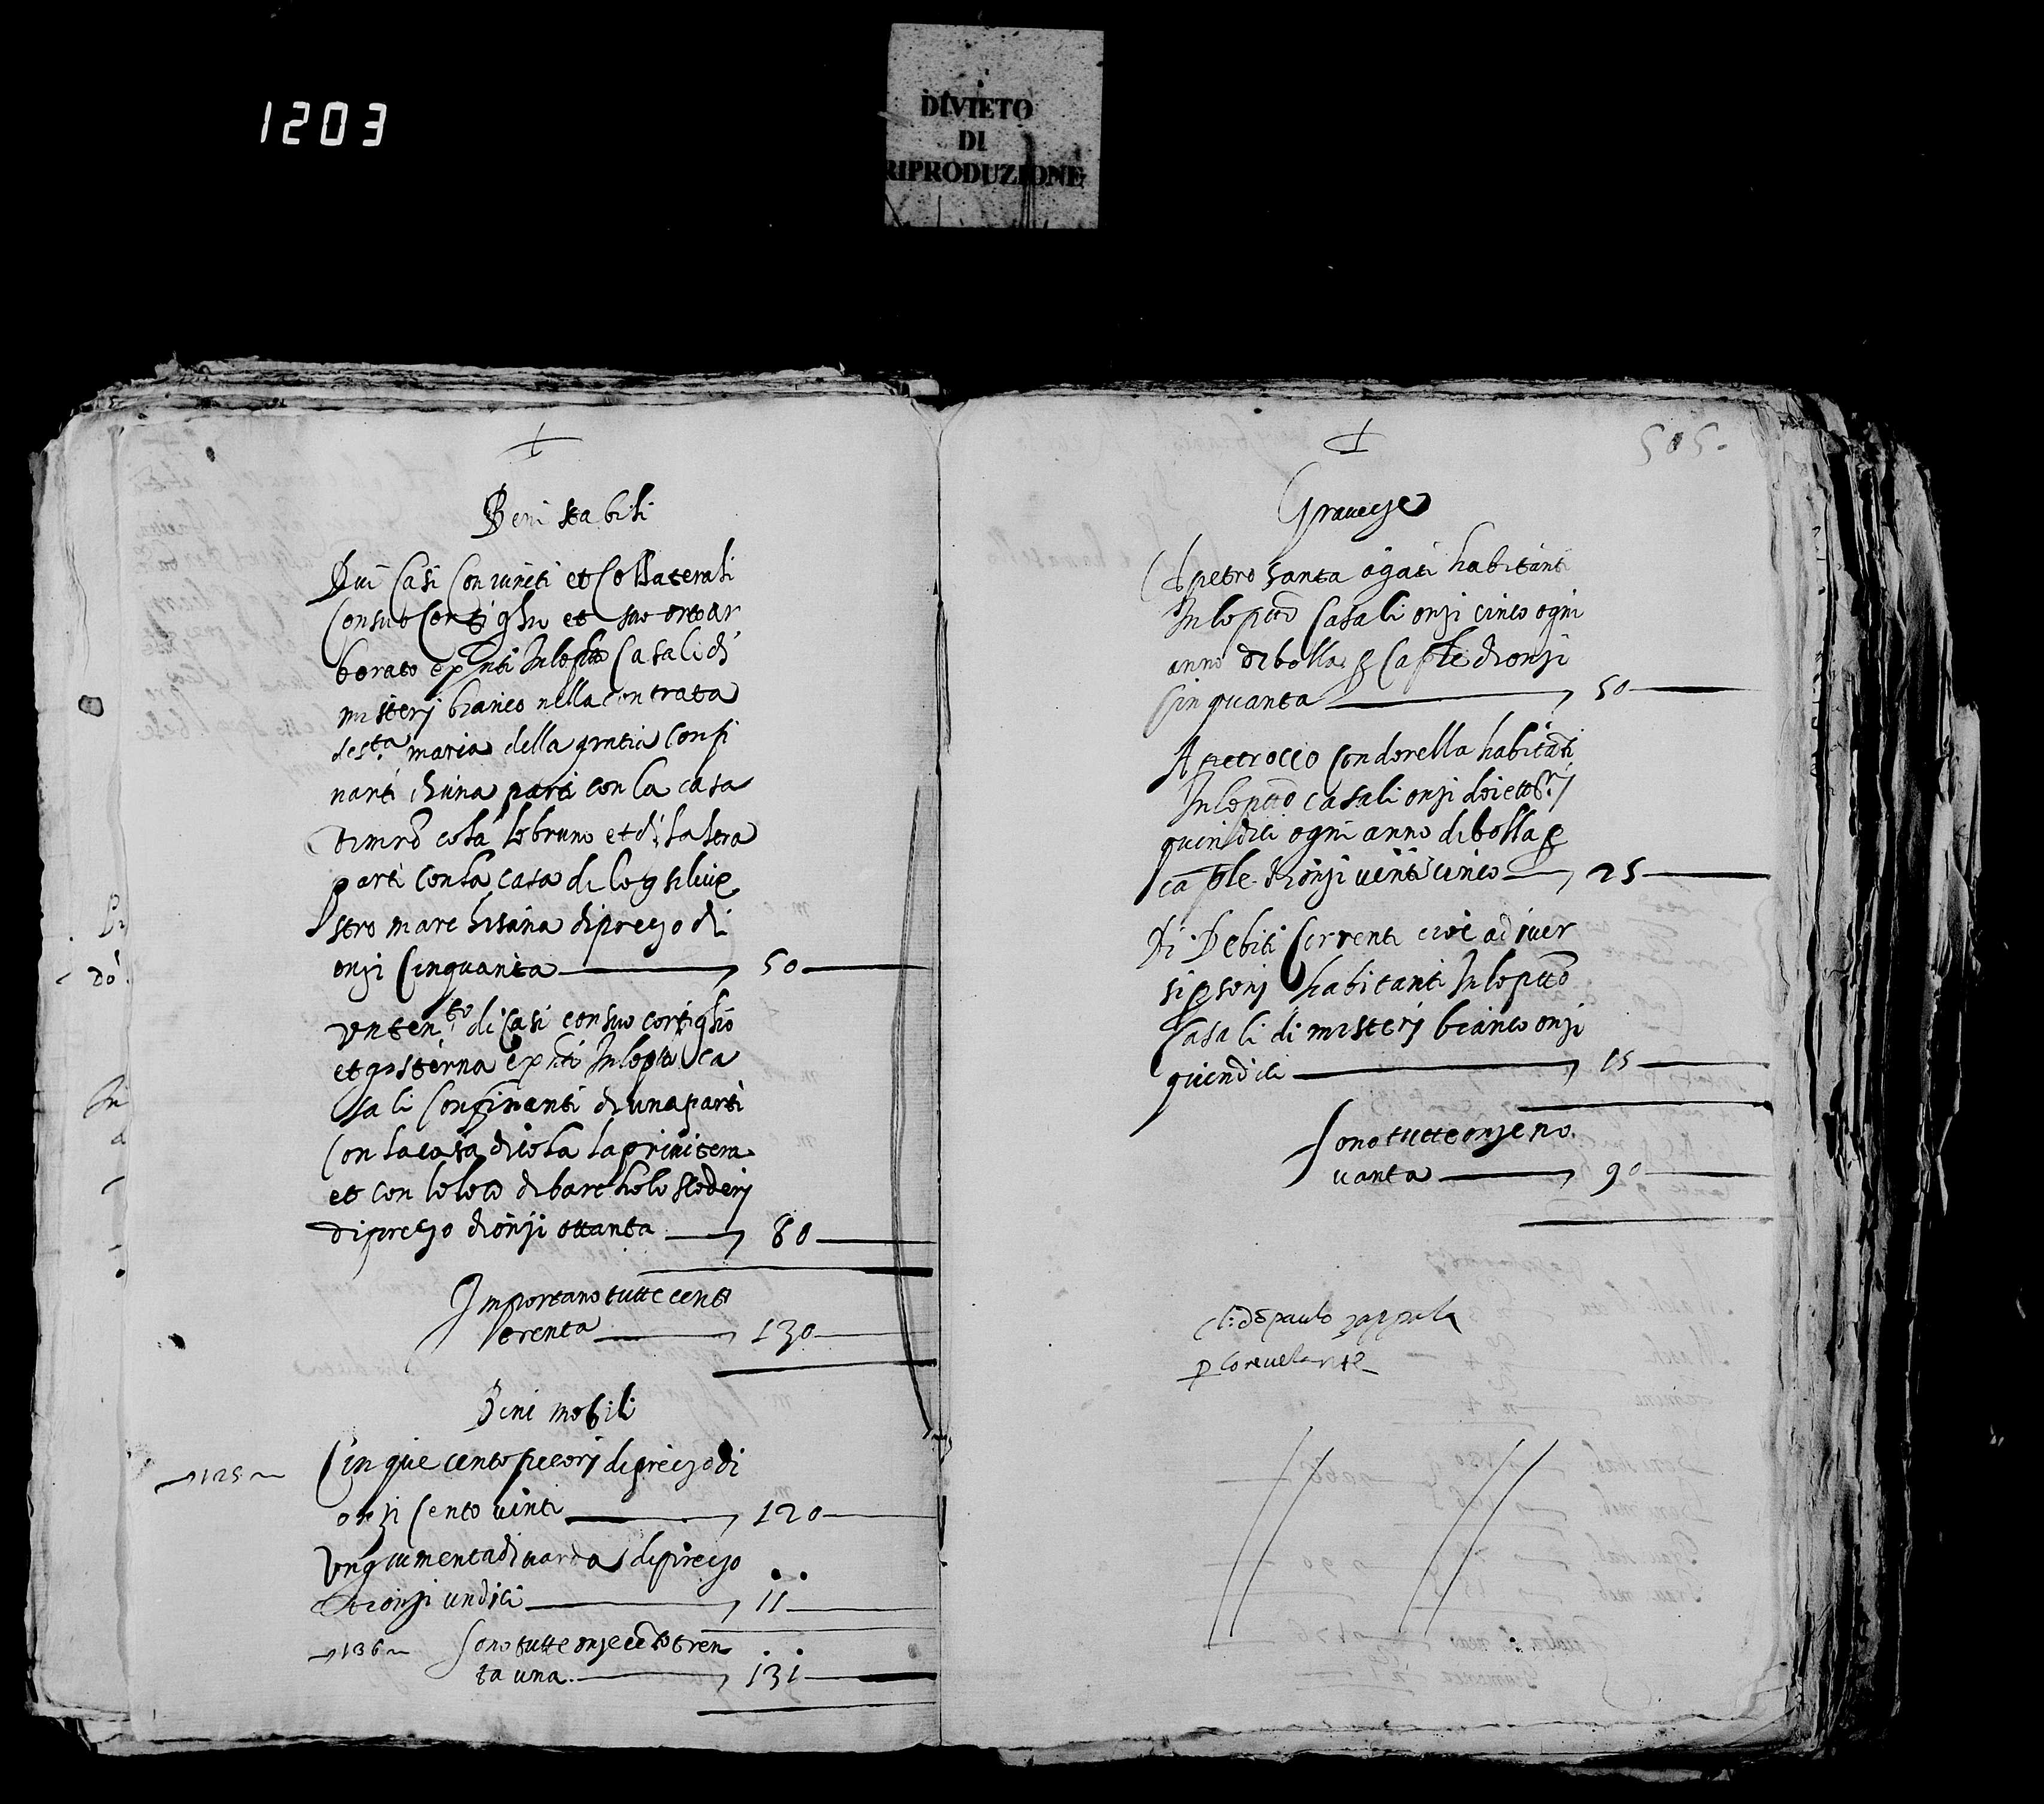 1203
DIVIETO
DI
RIPRODUZIONE
Beni stabili
Dui Casi Conuniti et Collaterali
Con suo Cortiglio et suo orto ar
borato exnti In lo ptto Casali di
misterj bianco nella contrata
de sta maria della gratia Confi
nanti di una parti con la casa
di mro cola lo bruno et di la tera
parti con la casa di lo q silue
stro marchisana di prezo di
onzi Cinquanta 50
Un ten.to di Casi con suo cortiglio
et gisterna exnti In lo ptto Ca
sali Confinanti di una parti
Con la casa di cola la priuitera
et con lo loco di bartholo scoderj
di prezo di onzi ottanta 80
Importano tutte cento
trenta 130
Beni mobili
125 Cinque cento pecorj di prezo di
onzi Cento vinti 120
Un giumenta di uarda di prezo
di onzi undici 11
136 Sono tutte onze cento tren
ta una 131
505.
Grauezze
A petro Santa agati habitanti
In lo ptto Casali onzi cinco ogni
anno di bolla p Caple di onzi
Cinquanta 50
A petro Condorella habitanti
In lo ptto casali onzi doi et trj
quindici ogni anno di bolla p
caple di onzi uinti cinco 25
Di Debiti Correnti cioè a diuer
si psonj habitanti In lo ptto
Casali di misterj bianco onzi
quindici 15
Sono tutte onze no
uanta 90
Cl: do paulo zappala
p lo reuelante